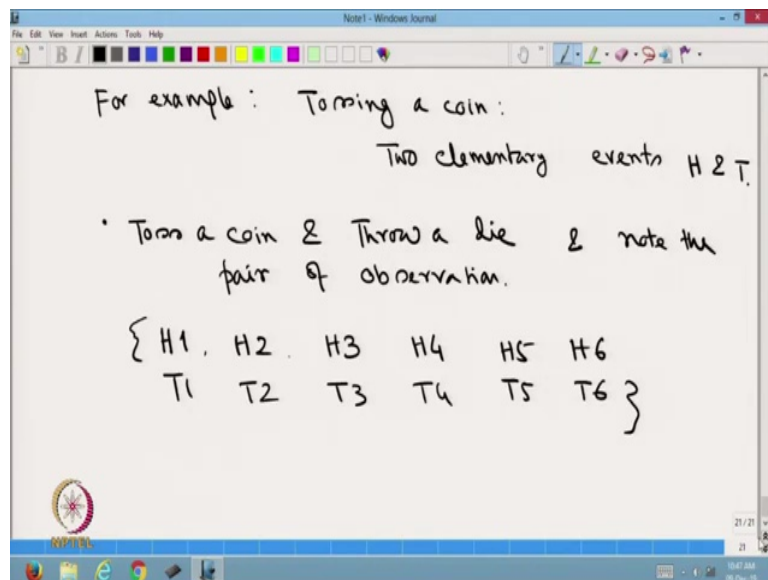 Note1 - Windows Journal
File Edit View Insert Actions Tools Help
B I
For example : Tossing a coin :
Two elementary events H & T.
· Toss a coin & Throw a die & note the
pair of observation.
{ H1 , H2 . H3 H4 H5 H6
T1 T2 T3 T4 T5 T6 }
NPTEL
21/21
21
10:47 AM